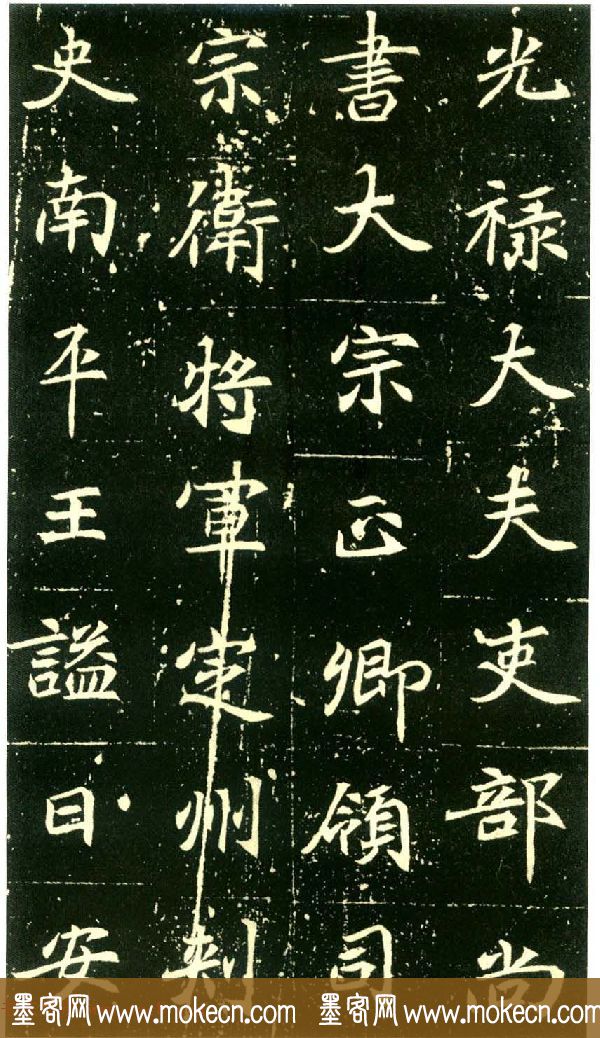 光禄大夫吏部尚
書大宗正卿領司
宗衛將軍定州刺
史南平王謚曰安
墨客网 www.mokecn.com 墨客网 www.mokecn.com